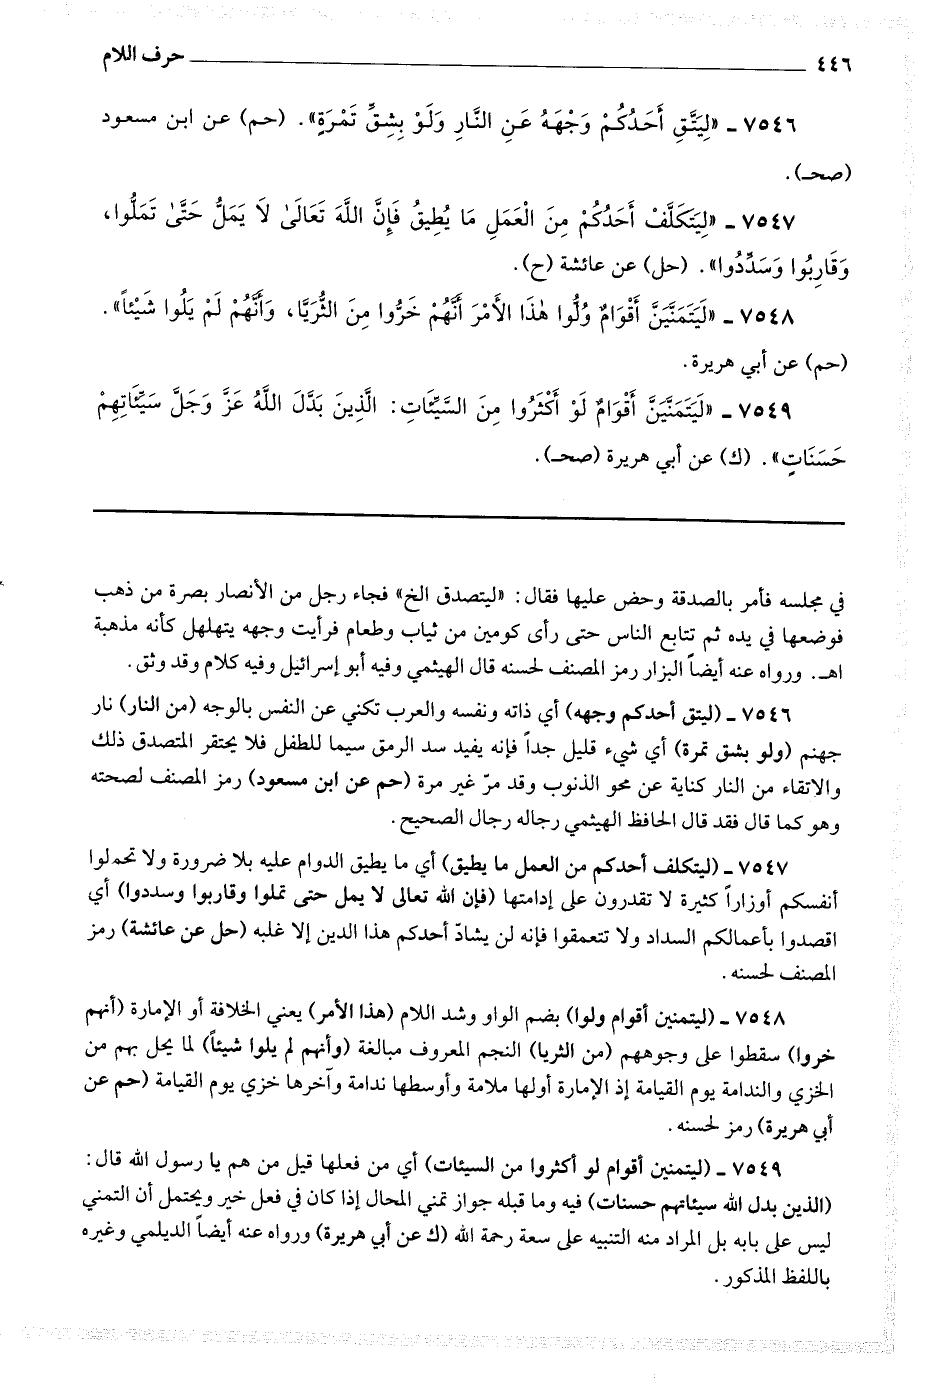 ٤٤٦ حرف اللام
٧٥٤٦ ـ «لِيَتَّقِ أَحَدُكُمْ وَجْهَهُ عَنِ النَّارِ وَلَوْ بِشِقِّ تَمْرَةٍ». (حم) عن ابن مسعود
(صحـ).
٧٥٤٧ ـ «لِيَتَكَلَّفْ أَحَدُكُمْ مِنَ الْعَمَلِ مَا يُطِيقُ فَإِنَّ اللَّهَ تَعَالَىٰ لَا يَمَلُّ حَتَّىٰ تَمَلُّوا،
وَقَارِبُوا وَسَدِّدُوا». (حل) عن عائشة (ح).
٧٥٤٨ ـ «لَيَتَمَنَّيَنَّ أَقْوَامٌ وُلُّوا هٰذَا الأَمْرَ أَنَّهُمْ خَرُّوا مِنَ الثُّرَيَّا، وَأَنَّهُمْ لَمْ يَلُوا شَيْئاً».
(حم) عن أبي هريرة.
٧٥٤٩ ـ «لَيَتَمَنَّيَنَّ أَقْوَامٌ لَوْ أَكْثَرُوا مِنَ السَّيِّئَاتِ: الَّذِينَ بَدَّلَ اللَّهُ عَزَّ وَجَلَّ سَيِّئَاتِهِمْ
حَسَنَاتٍ». (ك) عن أبي هريرة (صحـ).
في مجلسه فأمر بالصدقة وحض عليها فقال: «ليتصدق الخ» فجاء رجل من الأنصار بصرة من ذهب
فوضعها في يده ثم تتابع الناس حتى رأى كومين من ثياب وطعام فرأيت وجهه يتهلهل كأنه مذهبة
اهـ. ورواه عنه أيضاً البزار رمز المصنف لحسنه قال الهيثمي وفيه أبو إسرائيل وفيه كلام وقد وثق.
٧٥٤٦ ـ (ليتق أحدكم وجهه) أي ذاته ونفسه والعرب تكني عن النفس بالوجه (من النار) نار
جهنم (ولو بشق تمرة) أي شيء قليل جداً فإنه يفيد سد الرمق سيما للطفل فلا يحتقر المتصدق ذلك
والاتقاء من النار كناية عن محو الذنوب وقد مرّ غير مرة (حم عن ابن مسعود) رمز المصنف لصحته
وهو كما قال فقد قال الحافظ الهيثمي رجاله رجال الصحيح.
٧٥٤٧ ـ (ليتكلف أحدكم من العمل ما يطيق) أي ما يطيق الدوام عليه بلا ضرورة ولا تحملوا
أنفسكم أوزاراً كثيرة لا تقدرون على إدامتها (فإن الله تعالى لا يمل حتى تملوا وقاربوا وسددوا) أي
اقصدوا بأعمالكم السداد ولا تتعمقوا فإنه لن يشادّ أحدكم هذا الدين إلا غلبه (حل عن عائشة) رمز
المصنف لحسنه.
٧٥٤٨ ـ (ليتمنين أقوام ولوا) بضم الواو وشد اللام (هذا الأمر) يعني الخلافة أو الإمارة (أنهم
خروا) سقطوا على وجوههم (من الثريا) النجم المعروف مبالغة (وأنهم لم يلوا شيئاً) لما يحل بهم من
الخزي والندامة يوم القيامة إذ الإمارة أولها ملامة وأوسطها ندامة وآخرها خزي يوم القيامة (حم عن
أبي هريرة) رمز لحسنه.
٧٥٤٩ ـ (ليتمنين أقوام لو أكثروا من السيئات) أي من فعلها قيل من هم يا رسول الله قال:
(الذين بدل الله سيئاتهم حسنات) فيه وما قبله جواز تمني المحال إذا كان في فعل خير ويحتمل أن التمني
ليس على بابه بل المراد منه التنبيه على سعة رحمة الله (ك عن أبي هريرة) ورواه عنه أيضاً الديلمي وغيره
باللفظ المذكور.